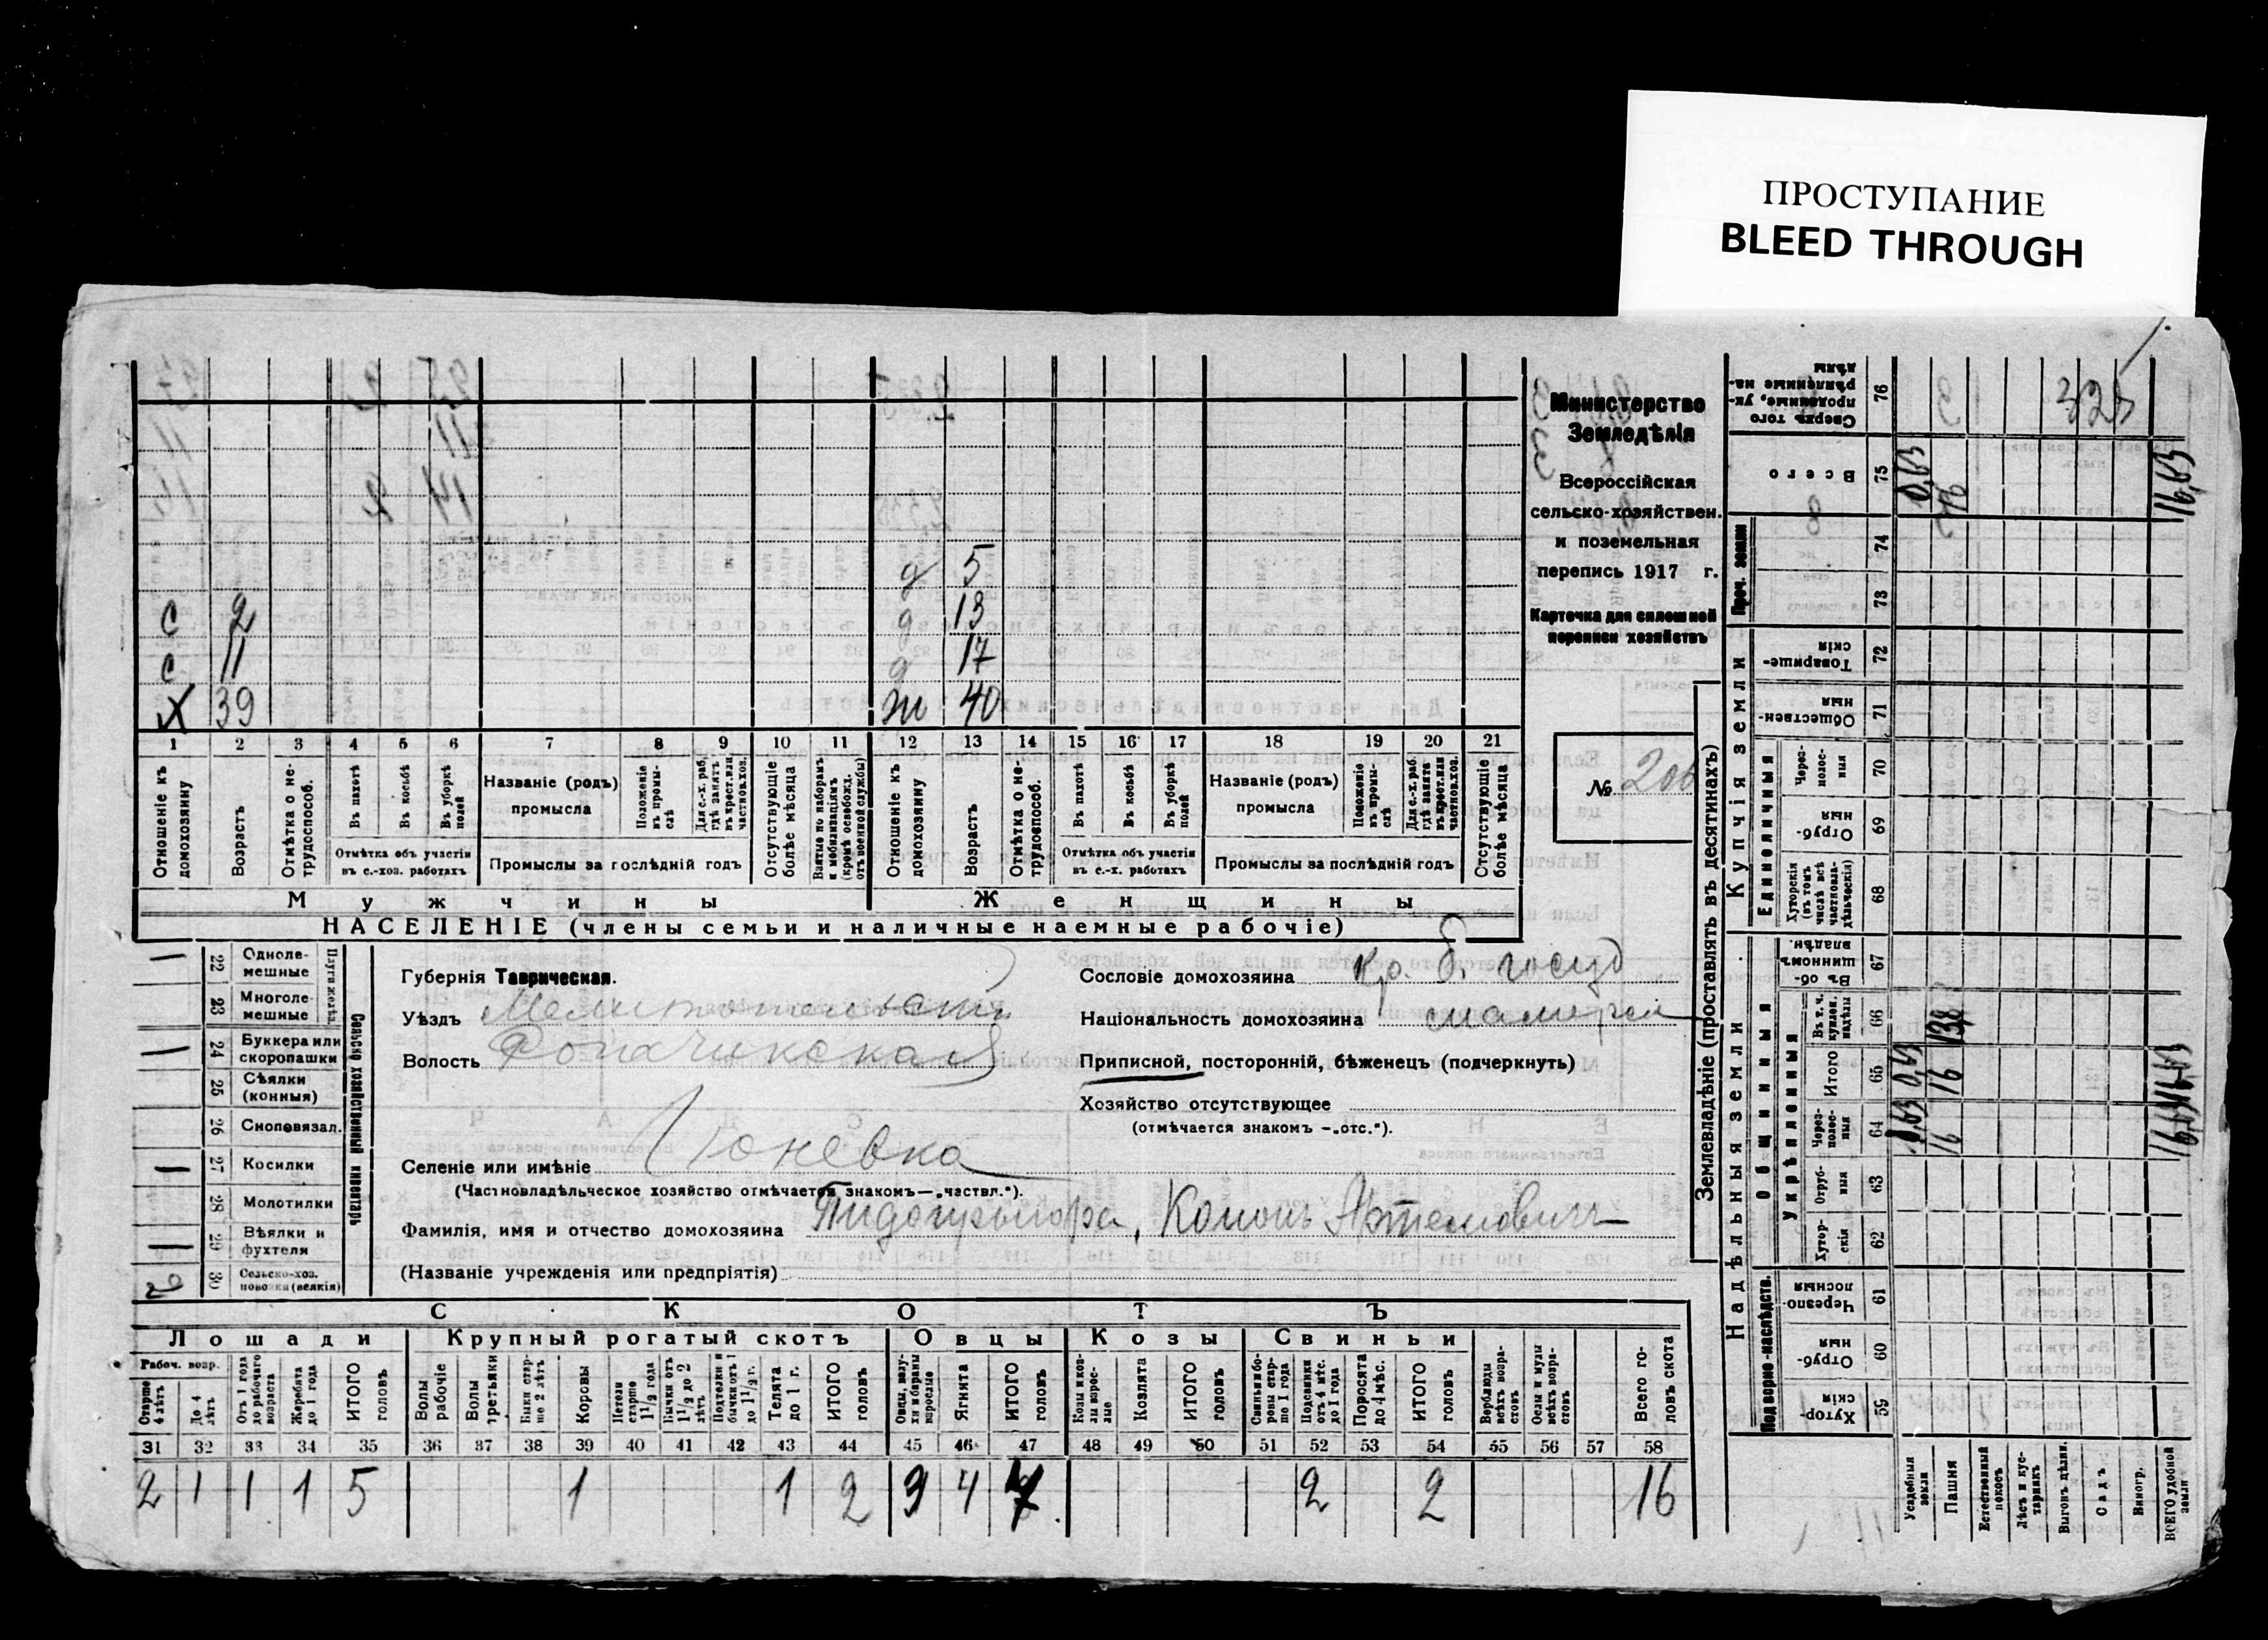 ПРОСТУПАНИЕ
BLEED THROUGH
д 5
с 2 д 13
с 11 д 17
х 39 ж 40
1 2 3 4 5 6 7 8 9 10 11 12 13 14 15 16 17 18 19 20 21
Отношеніе къ домохозяину
Возрастъ
Отмѣтка о нетрудоспособ.
Въ пахотѣ
Въ косьбѣ
Въ уборкѣ полей
Отмѣтка объ участіи въ с.-хоз. работахъ
Названіе (родъ) промысла
Положеніе въ промыслѣ
Для с.-х. раб. гдѣ занятъ въ крест. или частнов. хоз.
Промыслы за послѣдній годъ
Отсутствующіе болѣе мѣсяца
Взятые по наборамъ и мобилизаціямъ (кромѣ освобожд. отъ военной службы)
Отношеніе къ домохозяину
Возрастъ
Отмѣтка о нетрудоспособ.
Въ пахотѣ
Въ косьбѣ
Въ уборкѣ полей
Отмѣтка объ участіи въ с.-х. работахъ
Названіе (родъ) промысла
Положеніе въ промыслѣ
Для с.-х. раб. гдѣ занята въ крест. или частнов. хоз.
Промыслы за послѣдній годъ
Отсутствующіе болѣе мѣсяца
Мужчины
Женщины
НАСЕЛЕНІЕ (члены семьи и наличные наемные рабочіе)
Министерство
Земледѣлія
Всероссійская
сельско-хозяйствен.
и поземельная
перепись 1917 г.
Карточка для сплошной
переписи хозяйствъ
№ 206
22 Однолемешные
23 Многолемешные
24 Буккера или скоропашки
25 Сѣялки (конныя)
26 Сноповязал.
27 Косилки
28 Молотилки
29 Вѣялки и фухтеля
30 Сельско-хоз. повозки (всякія)
Сельско хозяйственный инвентарь
Губернія Таврическая.
Уѣздъ Мелитопольскій
Волость
Селеніе или имѣніе
(Частновладѣльческое хозяйство отмѣчается знакомъ—„частвл.“).
Фамилія, имя и отчество домохозяина Пидопригора, Кононъ Артемовичъ
(Названіе учрежденія или предпріятія)
Сословіе домохозяина кр. б. госуд
Національность домохозяина малор
Приписной, посторонній, бѣженецъ (подчеркнуть)
Хозяйство отсутствующее
(отмѣчается знакомъ —„отс.“).
СКОТЪ
Лошади Крупный рогатый скотъ Овцы Козы Свиньи
Рабоч. возр.
Старше 4 лѣтъ
До 4 лѣтъ
Отъ 1 года до рабочаго возраста
Жеребята до 1 года
ИТОГО головъ
Волы рабочіе
Волы третьяки
Быки старше 2 лѣтъ
Коровы
Нетели старше 1½ года
Бычки отъ 1½ до 2 лѣтъ
Подтелки и бычки отъ 1 до 1½ г.
Телята до 1 г.
ИТОГО головъ
Овцы, валухи и бараны взрослые
Ягнита
ИТОГО головъ
Козы и козлы взрослые
Козлята
ИТОГО головъ
Свиньи и боровы старше 1 года
Подсвинки отъ 4 мѣс. до 1 года
Поросята до 4 мѣс.
ИТОГО головъ
Верблюды всѣхъ возрастовъ
Ослы и мулы всѣхъ возрастовъ
Всего головъ скота
31 32 33 34 35 36 37 38 39 40 41 42 43 44 45 46 47 48 49 50 51 52 53 54 55 56 57 58
2 1 1 1 5 1 1 2 3 4 7 2 2 16
Землевладѣніе (проставлять въ десятинахъ)
Надѣльныя земли
Купчія земли
Проч. земли
Подворно-наслѣдств.
Общинныя
Укрѣпленныя
Единоличныя
76 Сверхъ того проданные, укрѣпленные надѣлы
75 Всего 0,63 16 16,63
74
73
72 Товарищескія
71 Общественныя
70 Черезполосныя
69 Отрубныя
68 Хуторскія (въ томъ числѣ всѣ частновладѣльческія)
67 Въ общинномъ владѣн.
66 Въ т. ч. куплен. надѣлы
65 Итого 0,63 16
64 Черезполосныя 0,63 16
63 Отрубныя
62 Хуторскія
61 Черезполосныя
60 Отрубныя
59 Хуторскія
Усадебныя земли
Пашня
Естественный покосъ
Лѣсъ и кустарникъ
Выгонъ цѣлин.
Садъ
Виногр.
ВСЕГО удобной земли